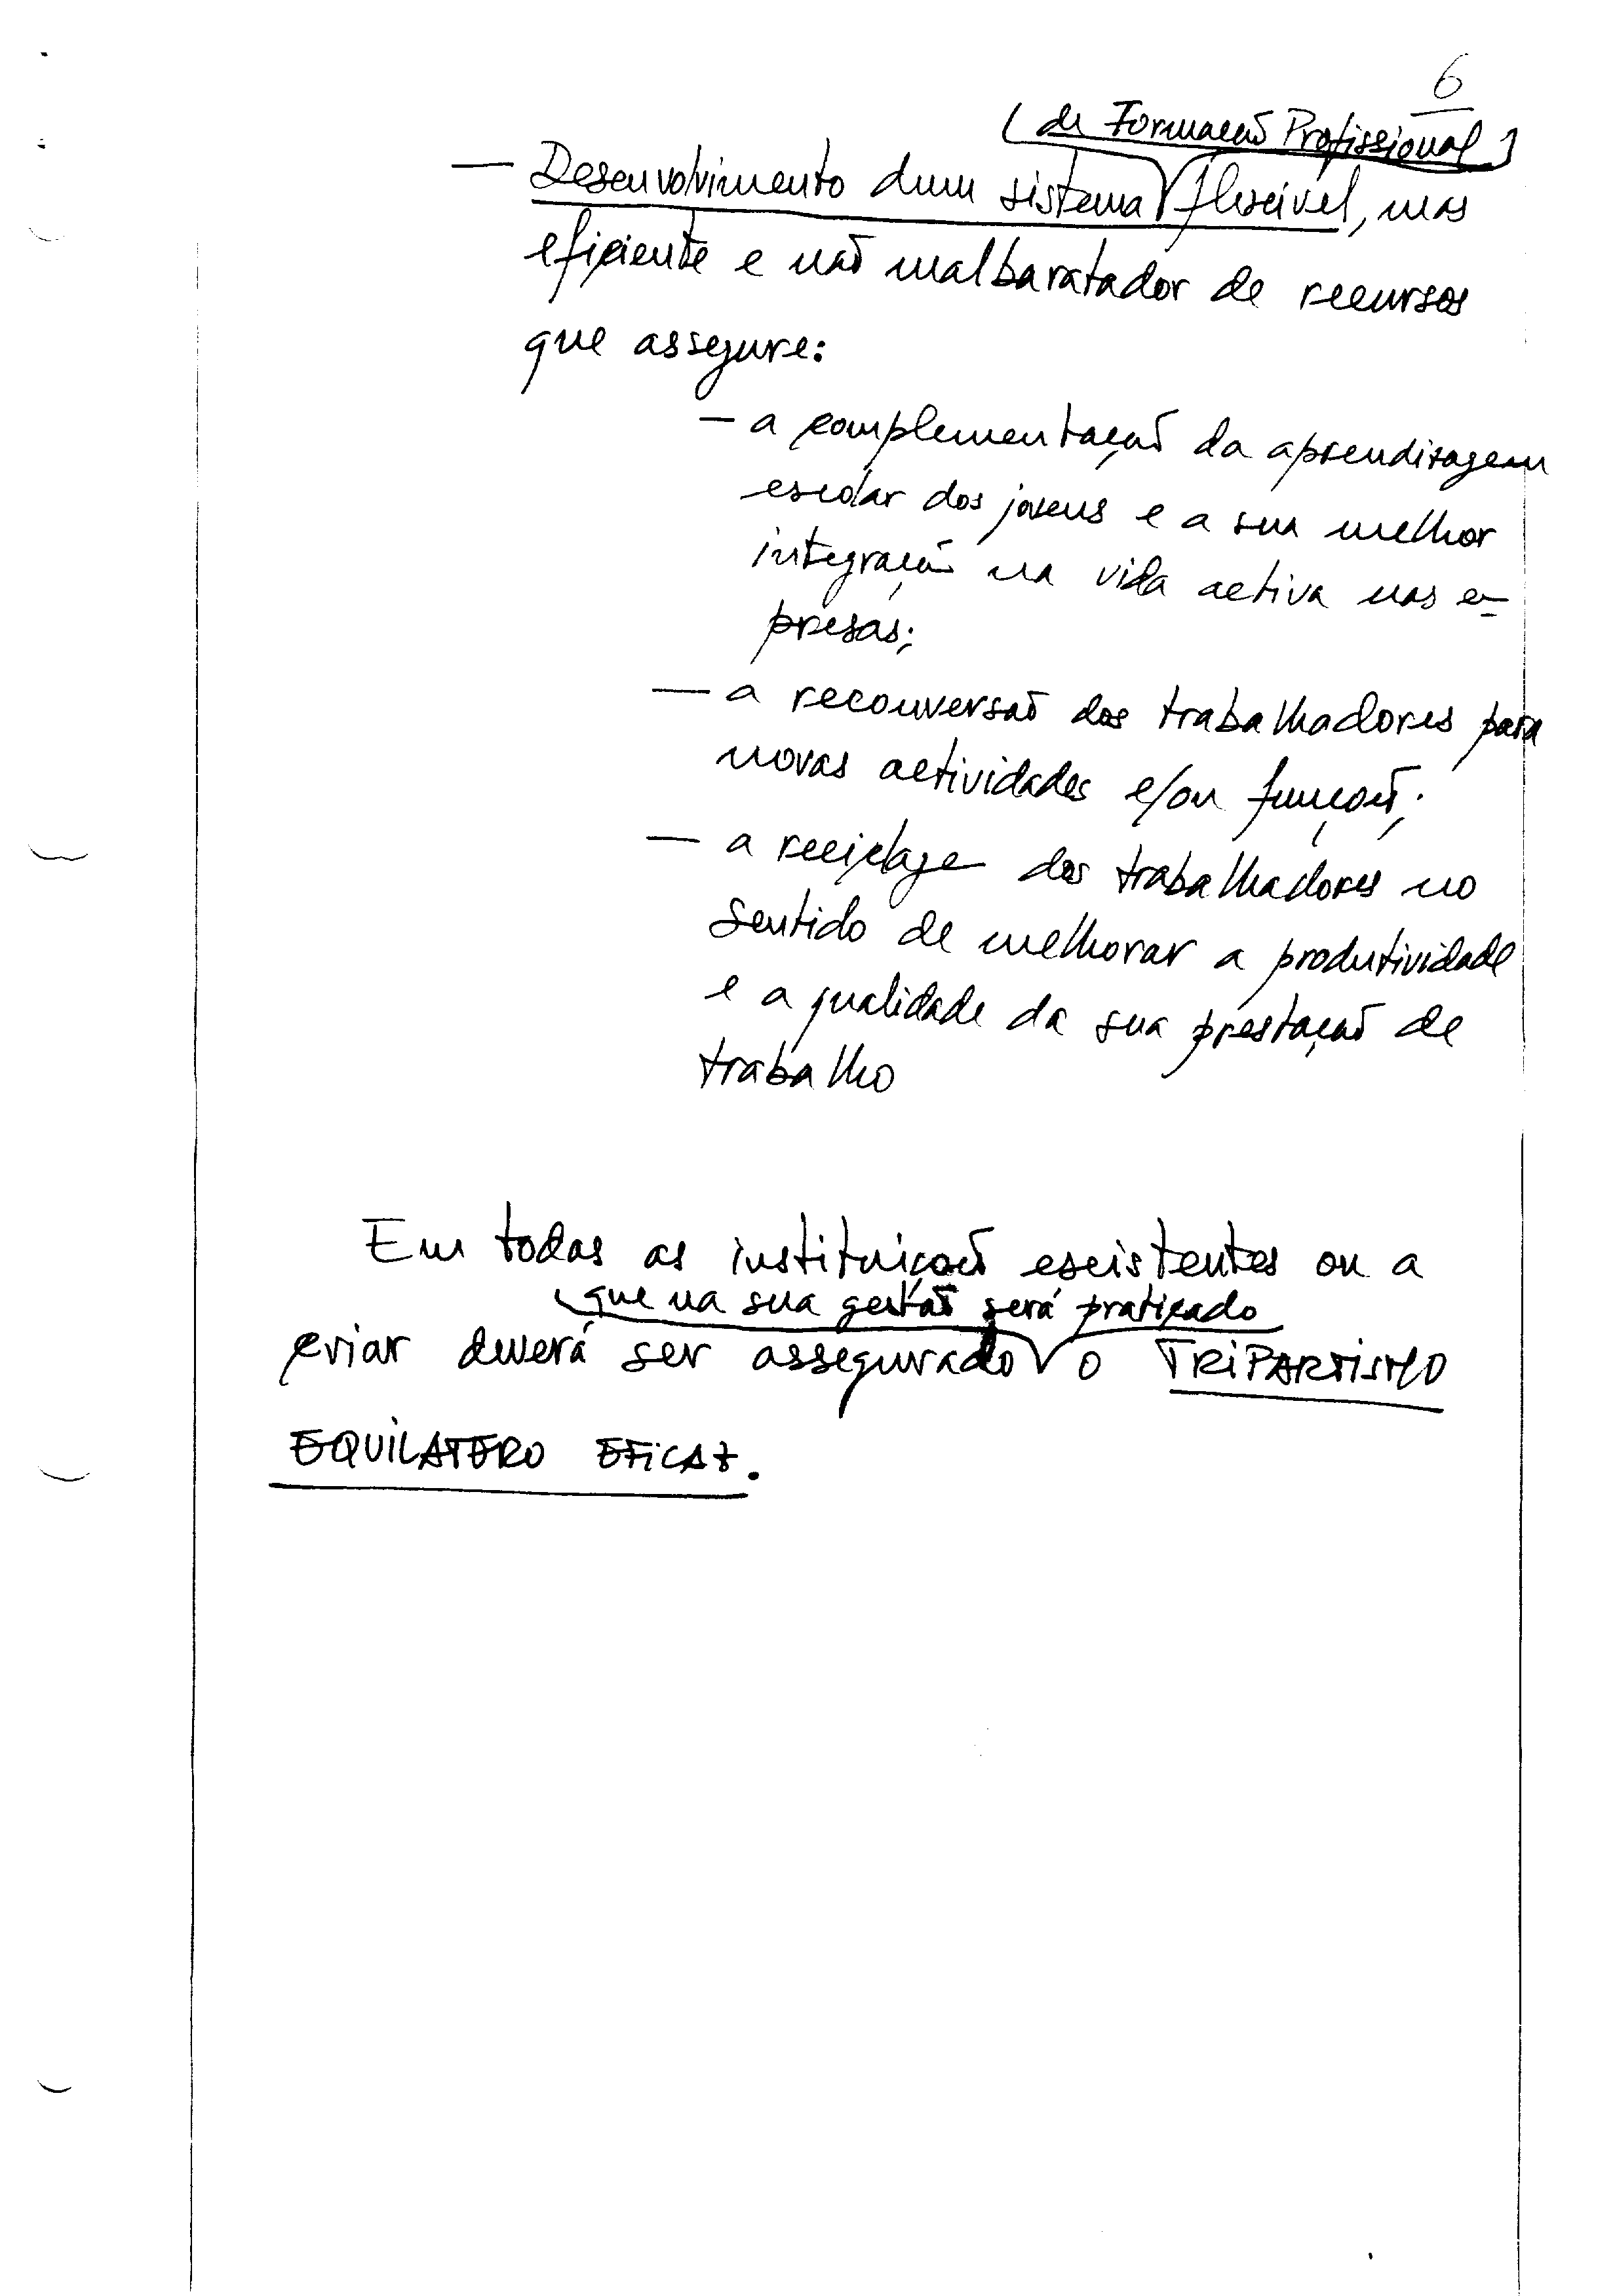 6
(de Formação Profissional)
— Desenvolvimento dum sistema flexível, mas
eficiente e não malbaratador de recursos
que assegure:
— a complementação da aprendizagem
escolar dos jovens e a sua melhor
integração na vida activa nas em-
presas;
— a reconversão dos trabalhadores para
novas actividades e/ou funções;
— a reciclagem dos trabalhadores no
sentido de melhorar a produtividade
e a qualidade da sua prestação de
trabalho
Em todas as instituições existentes ou a
que na sua gestão será praticado
criar deverá ser assegurado o TRIPARTISMO
EQUILATERO EFICAZ.